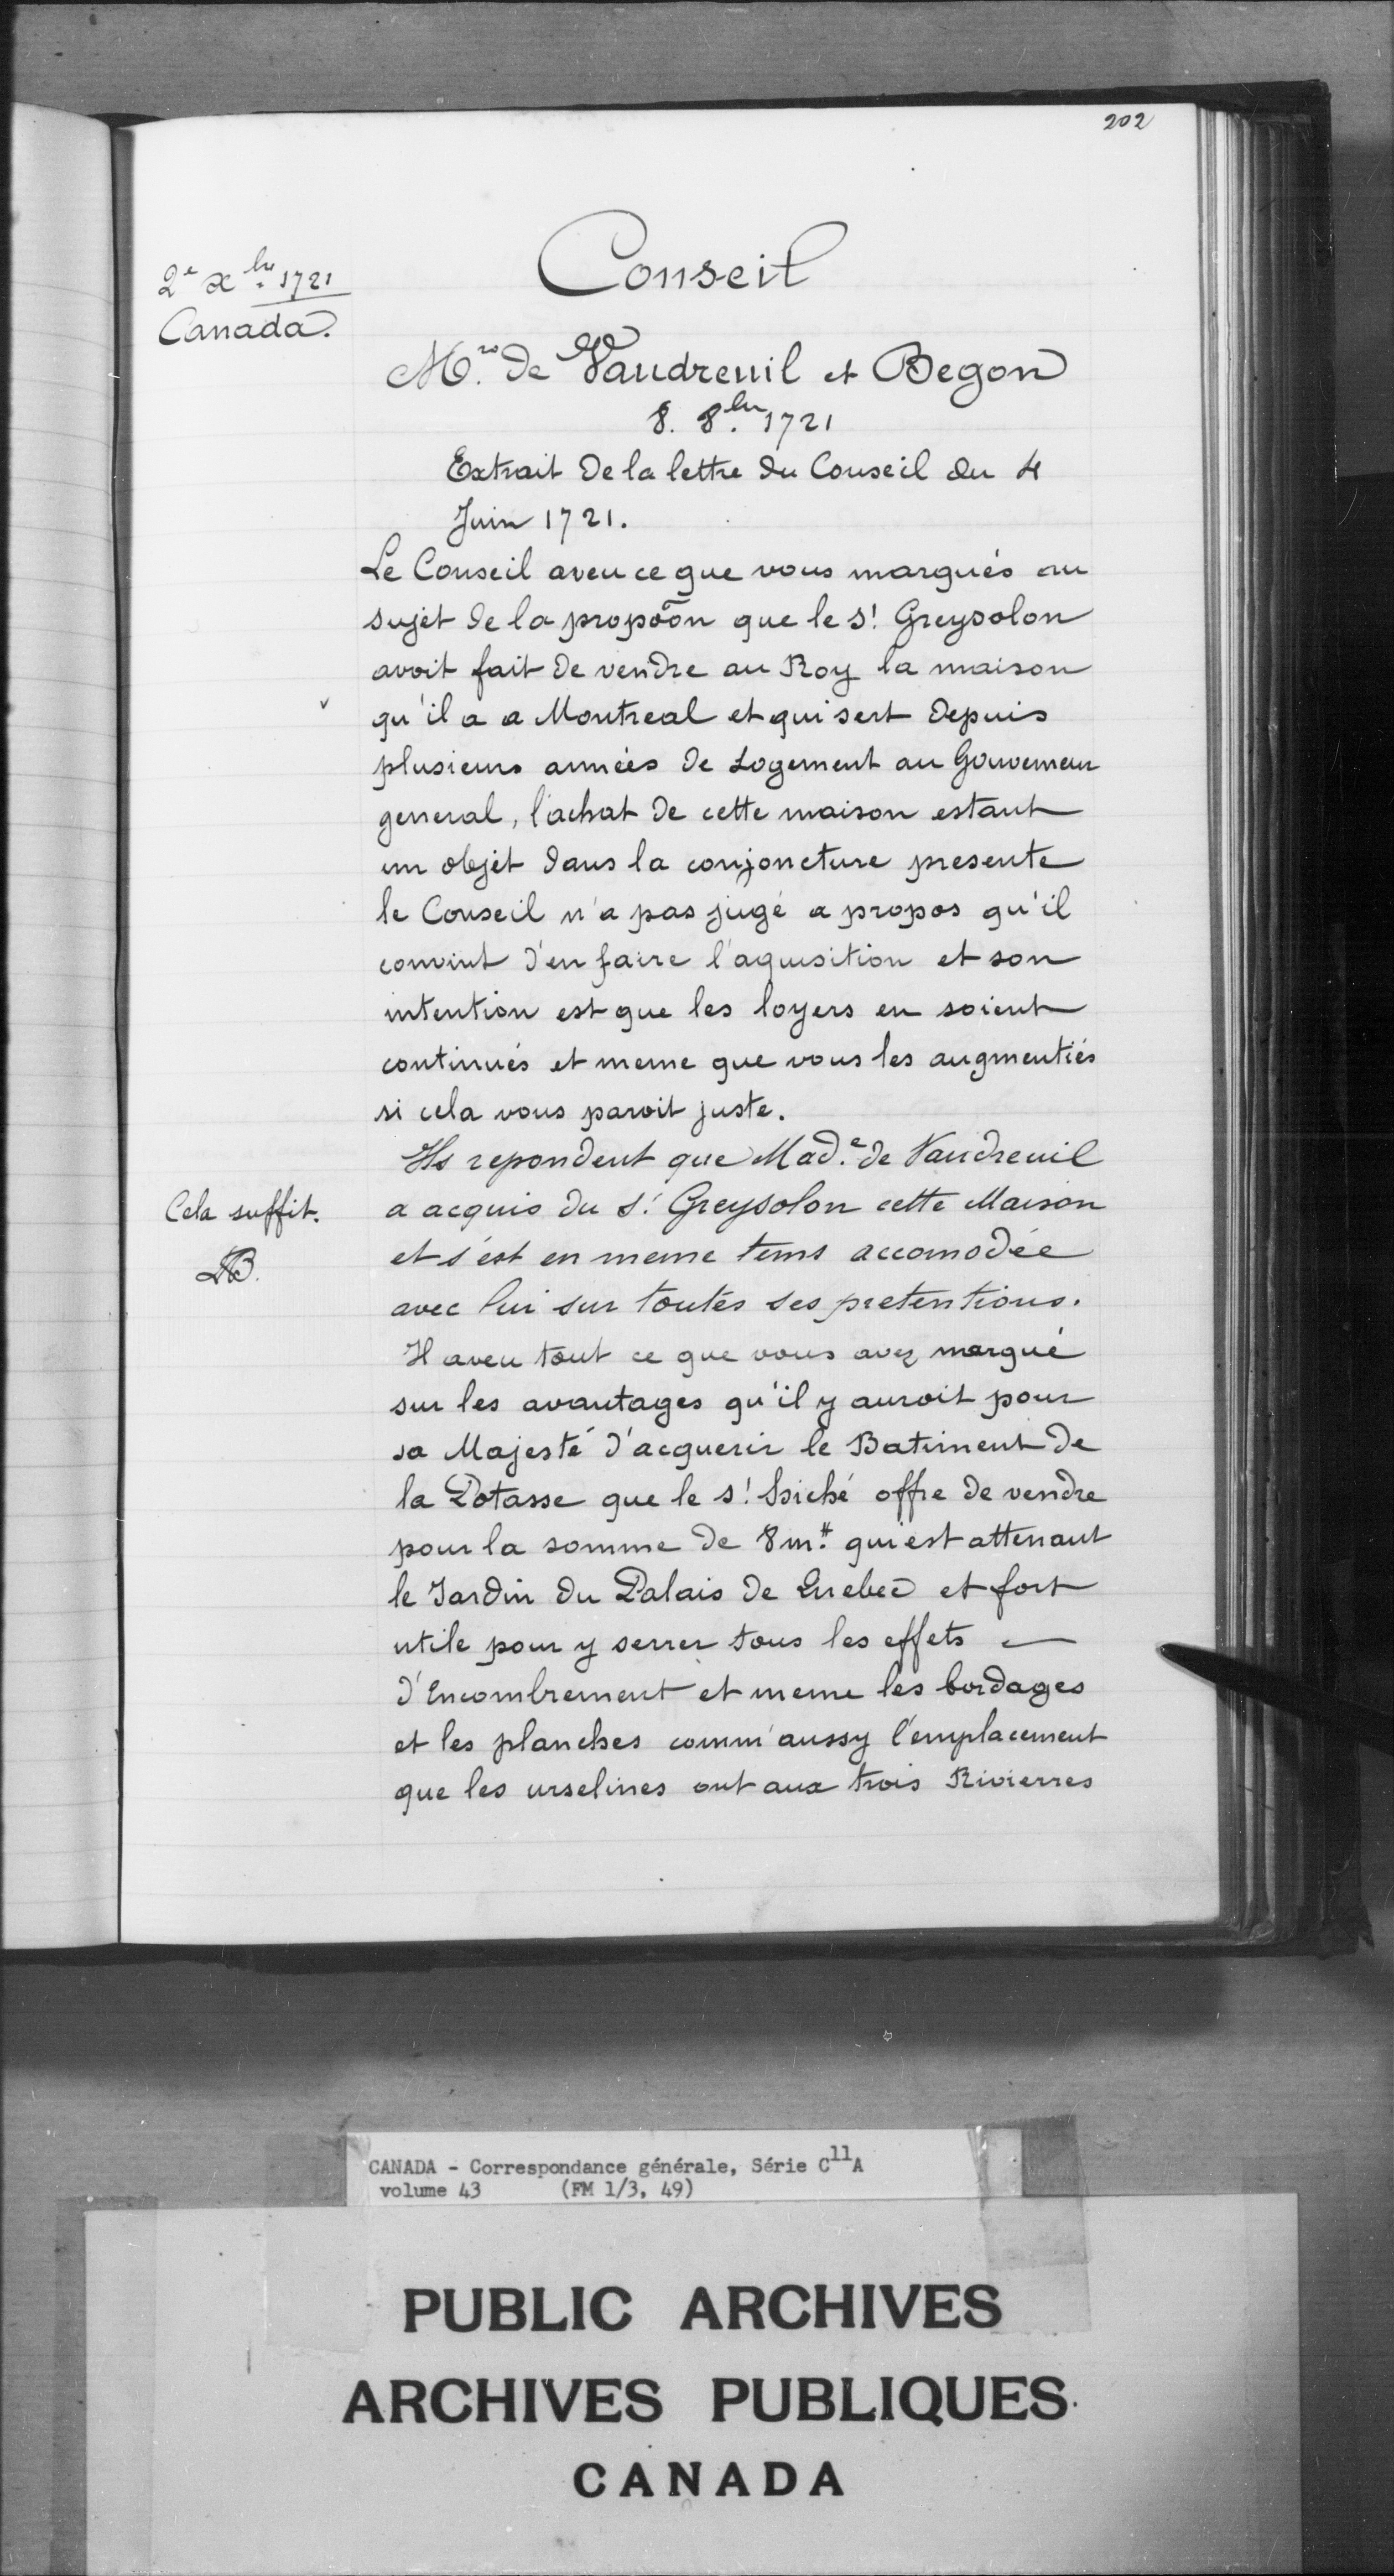 202
2e xbre 1721
Canada.
Conseil
Mrs de Vaudreuil et Begon
8. 8bre 1721
Extrait de la lettre du Conseil du 4
Juin 1721.
Le Conseil aveu ce que vous marqués au
sujet de la propōon que le Sr Greysolon
avoit fait de vendre au Roy la maison
qu'il a a Montreal et qui sert depuis
plusieurs années de Logement au Gouverneur
general, l'achat de cette maison estant
un objet dans la conjoncture presente
le Conseil n'a pas jugé a propos qu'il
convint d'en faire l'aquisition et son
intention est que les loyers en soient
continués et meme que vous les augmentiés
si cela vous paroit juste.
Ils repondent que Made de Vaudreuil
Cela suffit. a acquis du Sr Greysolon cette Maison
et s'est en meme tems accomodée
LB.
avec lui sur toutes ses pretentions.
Il aveu tout ce que vous avez marqué
sur les avantages qu'il y auroit pour
sa Majesté d'acquerir le Batiment de
la Potasse que le Sr hiché offre de vendre
pour la somme de 8m# qui est attenant
le Jardin du Palais de Quebec et fort
utile pour y serrer tous les effets —
d'Encombrement et meme les bordages
et les planches comm'aussy l'emplacement
que les urselines ont aux trois Rivierres
CANADA - Correspondance générale, Série C11A
volume 43 (FM 1/3, 49)
PUBLIC ARCHIVES
ARCHIVES PUBLIQUES
CANADA